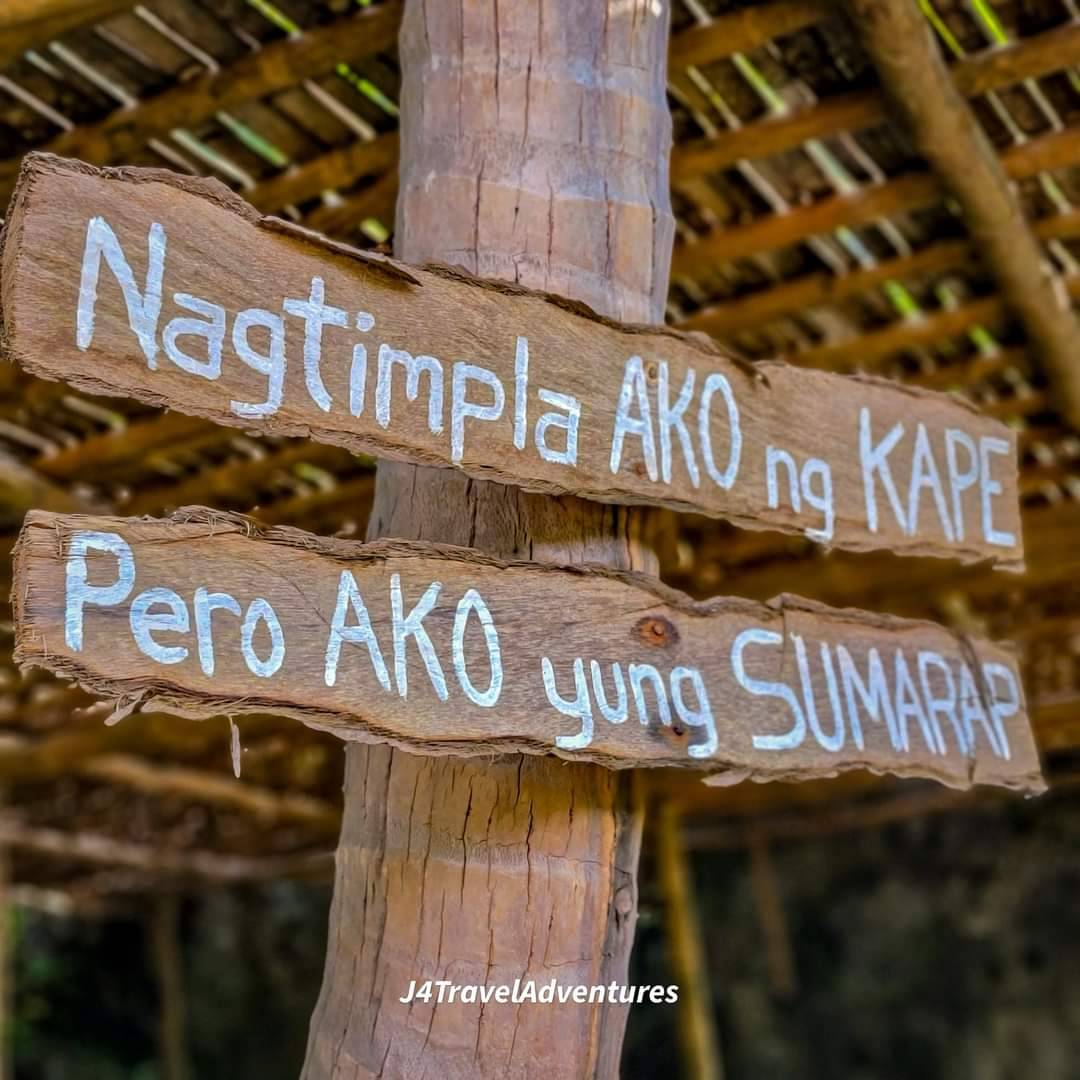 Nagtimpla AKO ng KAPE
Pero AKO yung SUMARAP
J4TravelAdventures